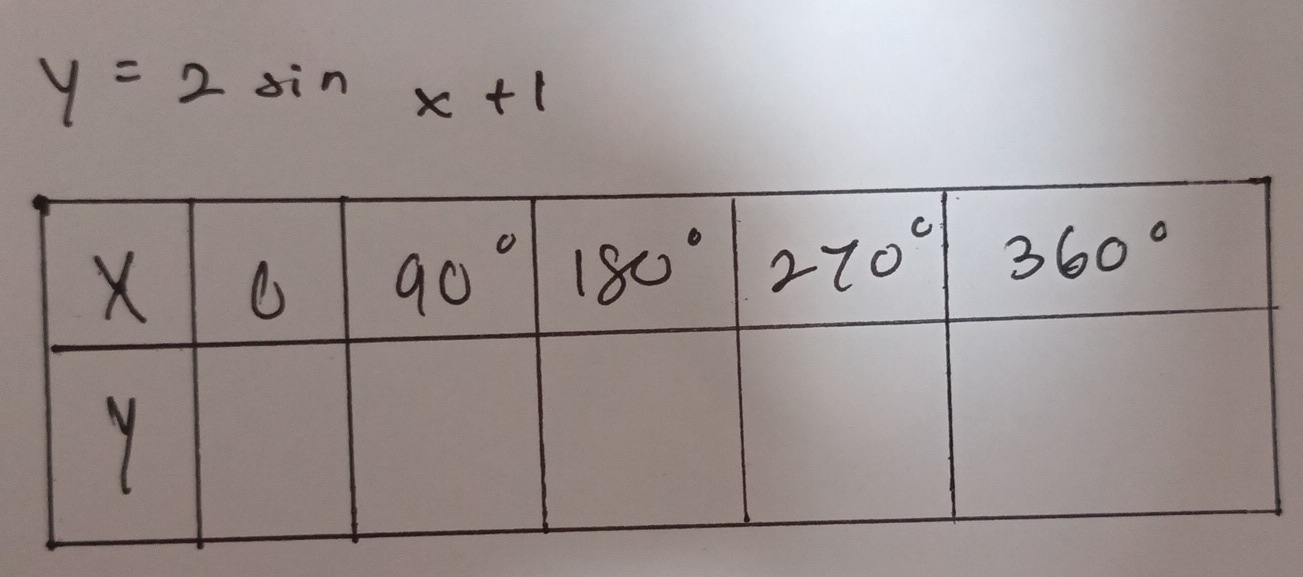 y = 2 sin x + 1
X 0 90° 180° 270° 360°
y